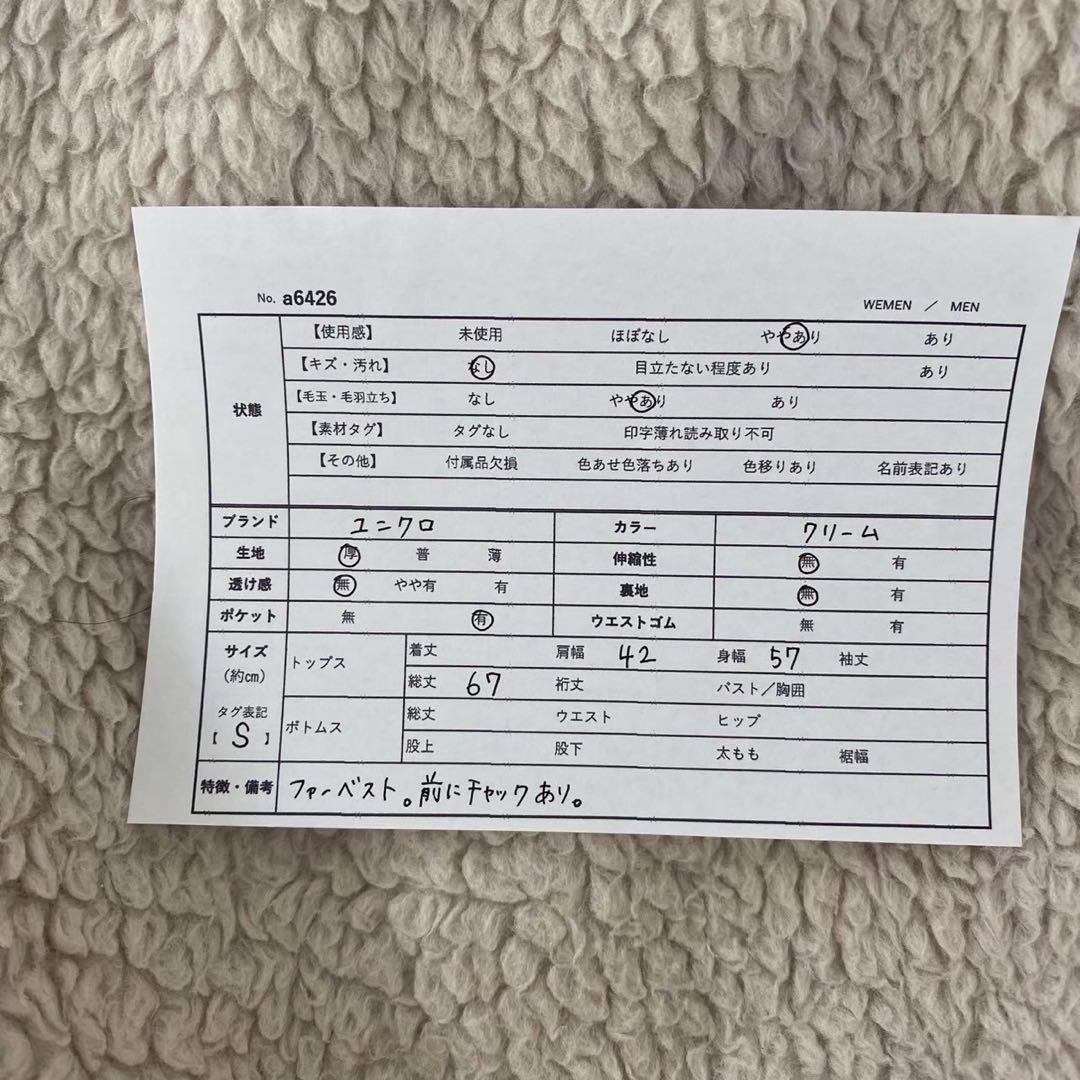 No. a6426
WEMEN / MEN
状態
【使用感】 未使用 ほぼなし ややあり あり
【キズ・汚れ】 なし 目立たない程度あり あり
【毛玉・毛羽立ち】 なし ややあり あり
【素材タグ】 タグなし 印字薄れ読み取り不可
【その他】 付属品欠損 色あせ色落ちあり 色移りあり 名前表記あり
ブランド ユニクロ カラー クリーム
生地 厚 普 薄 伸縮性 無 有
透け感 無 やや有 有 裏地 無 有
ポケット 無 有 ウエストゴム 無 有
サイズ (約cm) トップス 着丈 肩幅 42 身幅 57 袖丈
総丈 67 裄丈 バスト/胸囲
タグ表記 【 S 】 ボトムス 総丈 ウエスト ヒップ
股上 股下 太もも 裾幅
特徴・備考 ファーベスト。前にチャックあり。